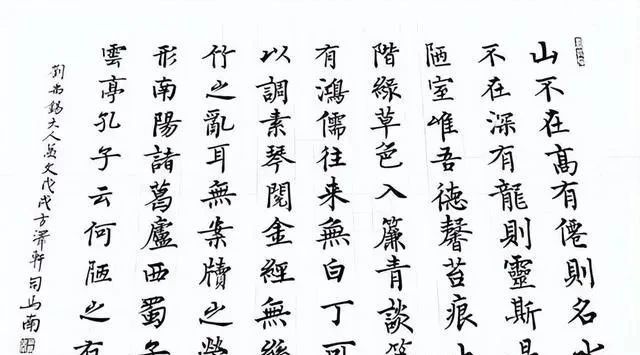 山不在高有僊則名水
不在深有龍則靈斯是
陋室唯吾德馨苔痕上
階綠草色入簾青談笑
有鴻儒往来無白丁可
以調素琴閱金經無絲
竹之亂耳無案牘之勞
形南陽諸葛廬西蜀子
雲亭孔子云何陋之有
劉禹錫大人美文戊戌方霽軒司馬南